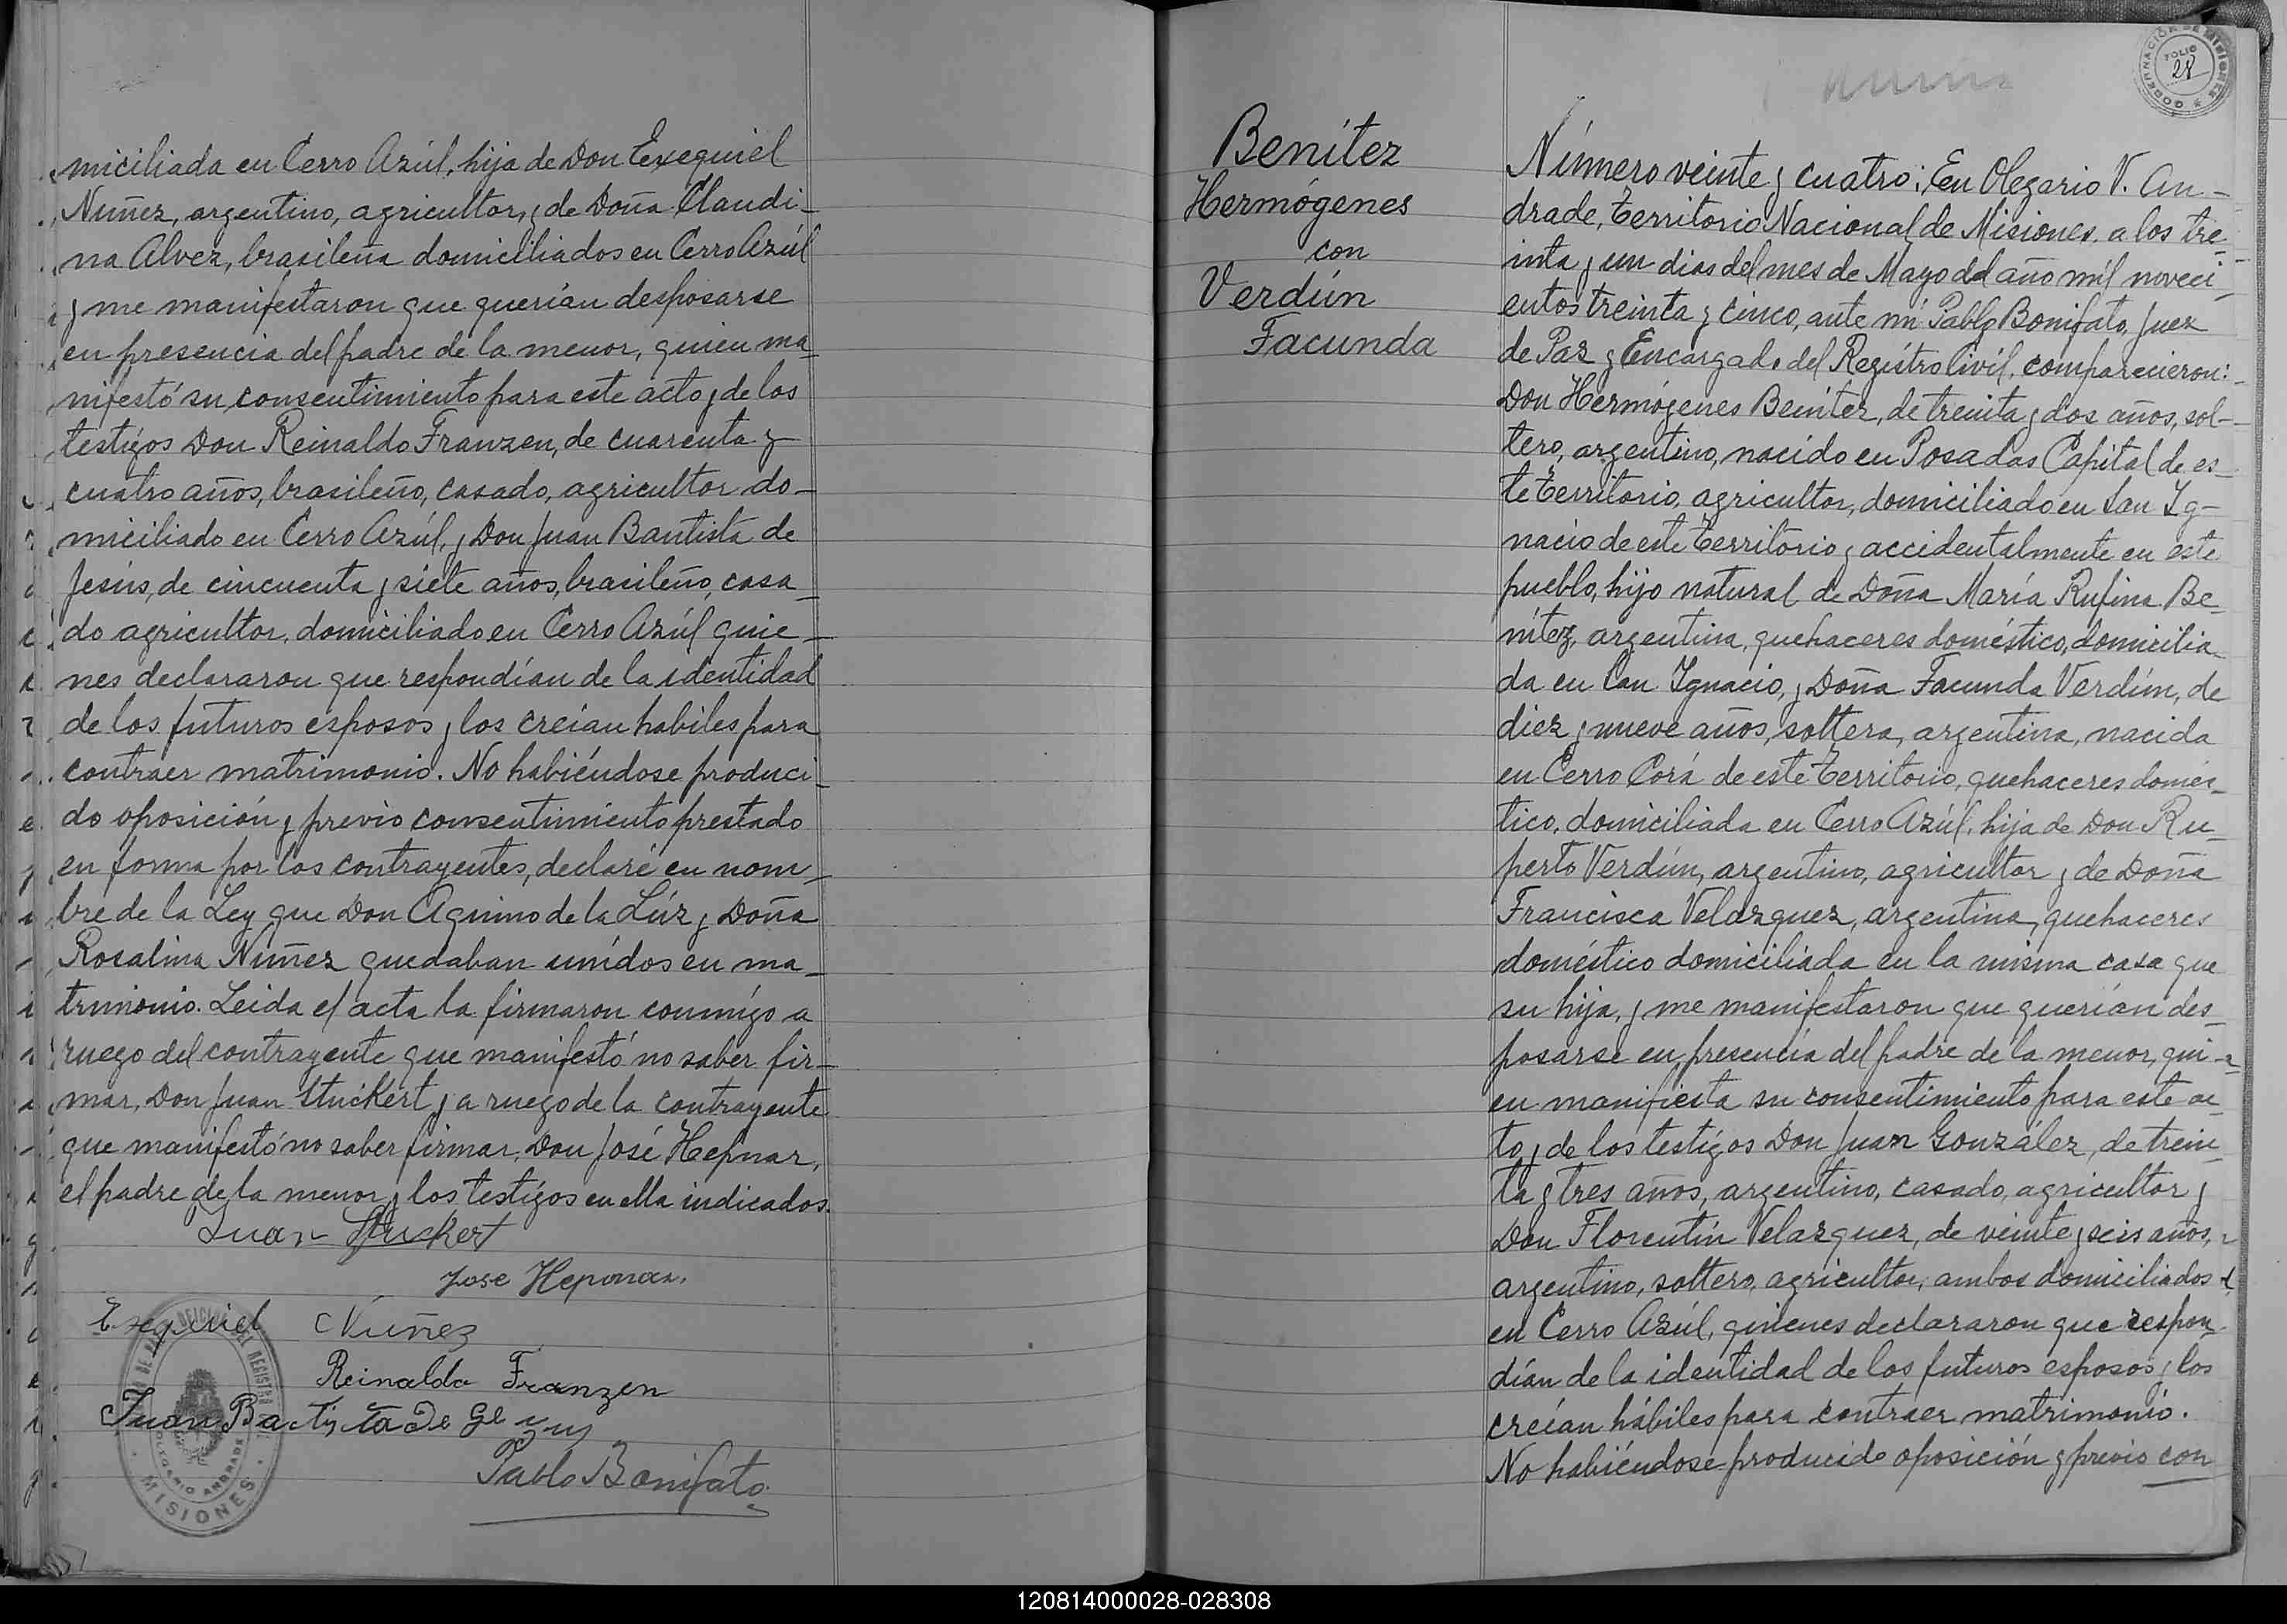 miciliada en Cerro Azúl, hija de Don Exequiel
Nuñez, argentino, agricultor, y de Doña Claudi-
na Alvez, brasileña domiciliados en Cerro Azúl
y me manifestaron que querían desposarse
en presencia del padre de la menor, quien ma-
nifestó su consentimiento para este acto y de los
testígos Don Reinaldo Franzen, de cuarenta y
cuatro años, brasileño, casado, agricultor do-
miciliado en Cerro Azúl, y Don Juan Bautista de
Jesús, de cincuenta y siete años, brasileño, casa-
do agricultor, domiciliado en Cerro Azúl quie-
nes declararon que respondían de la identidad
de los futuros esposos y los creian habiles para
contraer matrimonio. No habiéndose produci-
do oposición y previo consentimiento prestado
en forma por los contrayentes, declaré en nom-
bre de la Ley que Don Aquino de la Lúz y Doña
Rosalina Nuñez quedaban unídos en ma-
trimonio. Leida el acta la firmaron conmígo a
ruego del contrayente que manifestó no saber fir-
mar, Don Juan Stuckert y a ruego de la contrayente
que manifestó no saber firmar, Don José Hepnar,
el padre de la menor y los testígos en ella indicados.
Juan Stuckert
Jose Heponar.
Exequiel Nuñez
Reinaldo Franzen
Juan Bactista De
Pablo Bonifato
OLEGARIO ANDRADE
MISIONES
GOBERNACIÓN DE MISIONES
FOLIO
28
Benítez
Hermógenes
con
Verdún
Facunda
Número veinte y cuatro: En Olegario V. An-
drade, Territorio Nacional de Misiones, a los tre-
inta y un dias del mes de Mayo del año mil noveci-
entos treinta y cinco, ante mí Pablo Bonifato, Juez
de Paz y Encargado del Regístro Civíl, comparecieron:
Don Hermógenes Benítez, de treinta y dos años, sol-
tero, argentino, nacido en Posadas Capital de es-
te Territorio, agricultor, domiciliado en San Ig-
nacio de este Territorio y accidentalmente en este
pueblo, hijo natural de Doña María Rufina Be-
nítez, argentina, quehaceres doméstico, domicilia-
da en San Ignacio, y Doña Facunda Verdún, de
diez y nueve años, soltera, argentina, nacida
en Cerro Corá de este Territorio, quehaceres domés-
tico, domiciliada en Cerro Azúl, hija de Don Ru-
perto Verdún, argentino, agricultor y de Doña
Francisca Velazquez, argentina, quehaceres
doméstico domiciliada en la misma casa que
su hija, y me manifestaron que querían des-
posarse en presencia del padre de la menor, qui-
en manifiesta su consentimiento para este ac-
to y de los testígos Don Juan González, de trein-
ta y tres años, argentino, casado, agricultor y
Don Florentín Velazquez, de veinte y seis años,
argentino, soltero, agricultor, ambos domiciliados
en Cerro Azúl, quienes declararon que respon-
dían de la identidad de los futuros esposos y los
creían hábiles para contraer matrimonio.
No habiéndose producido oposición y previo con
120814000028-028308